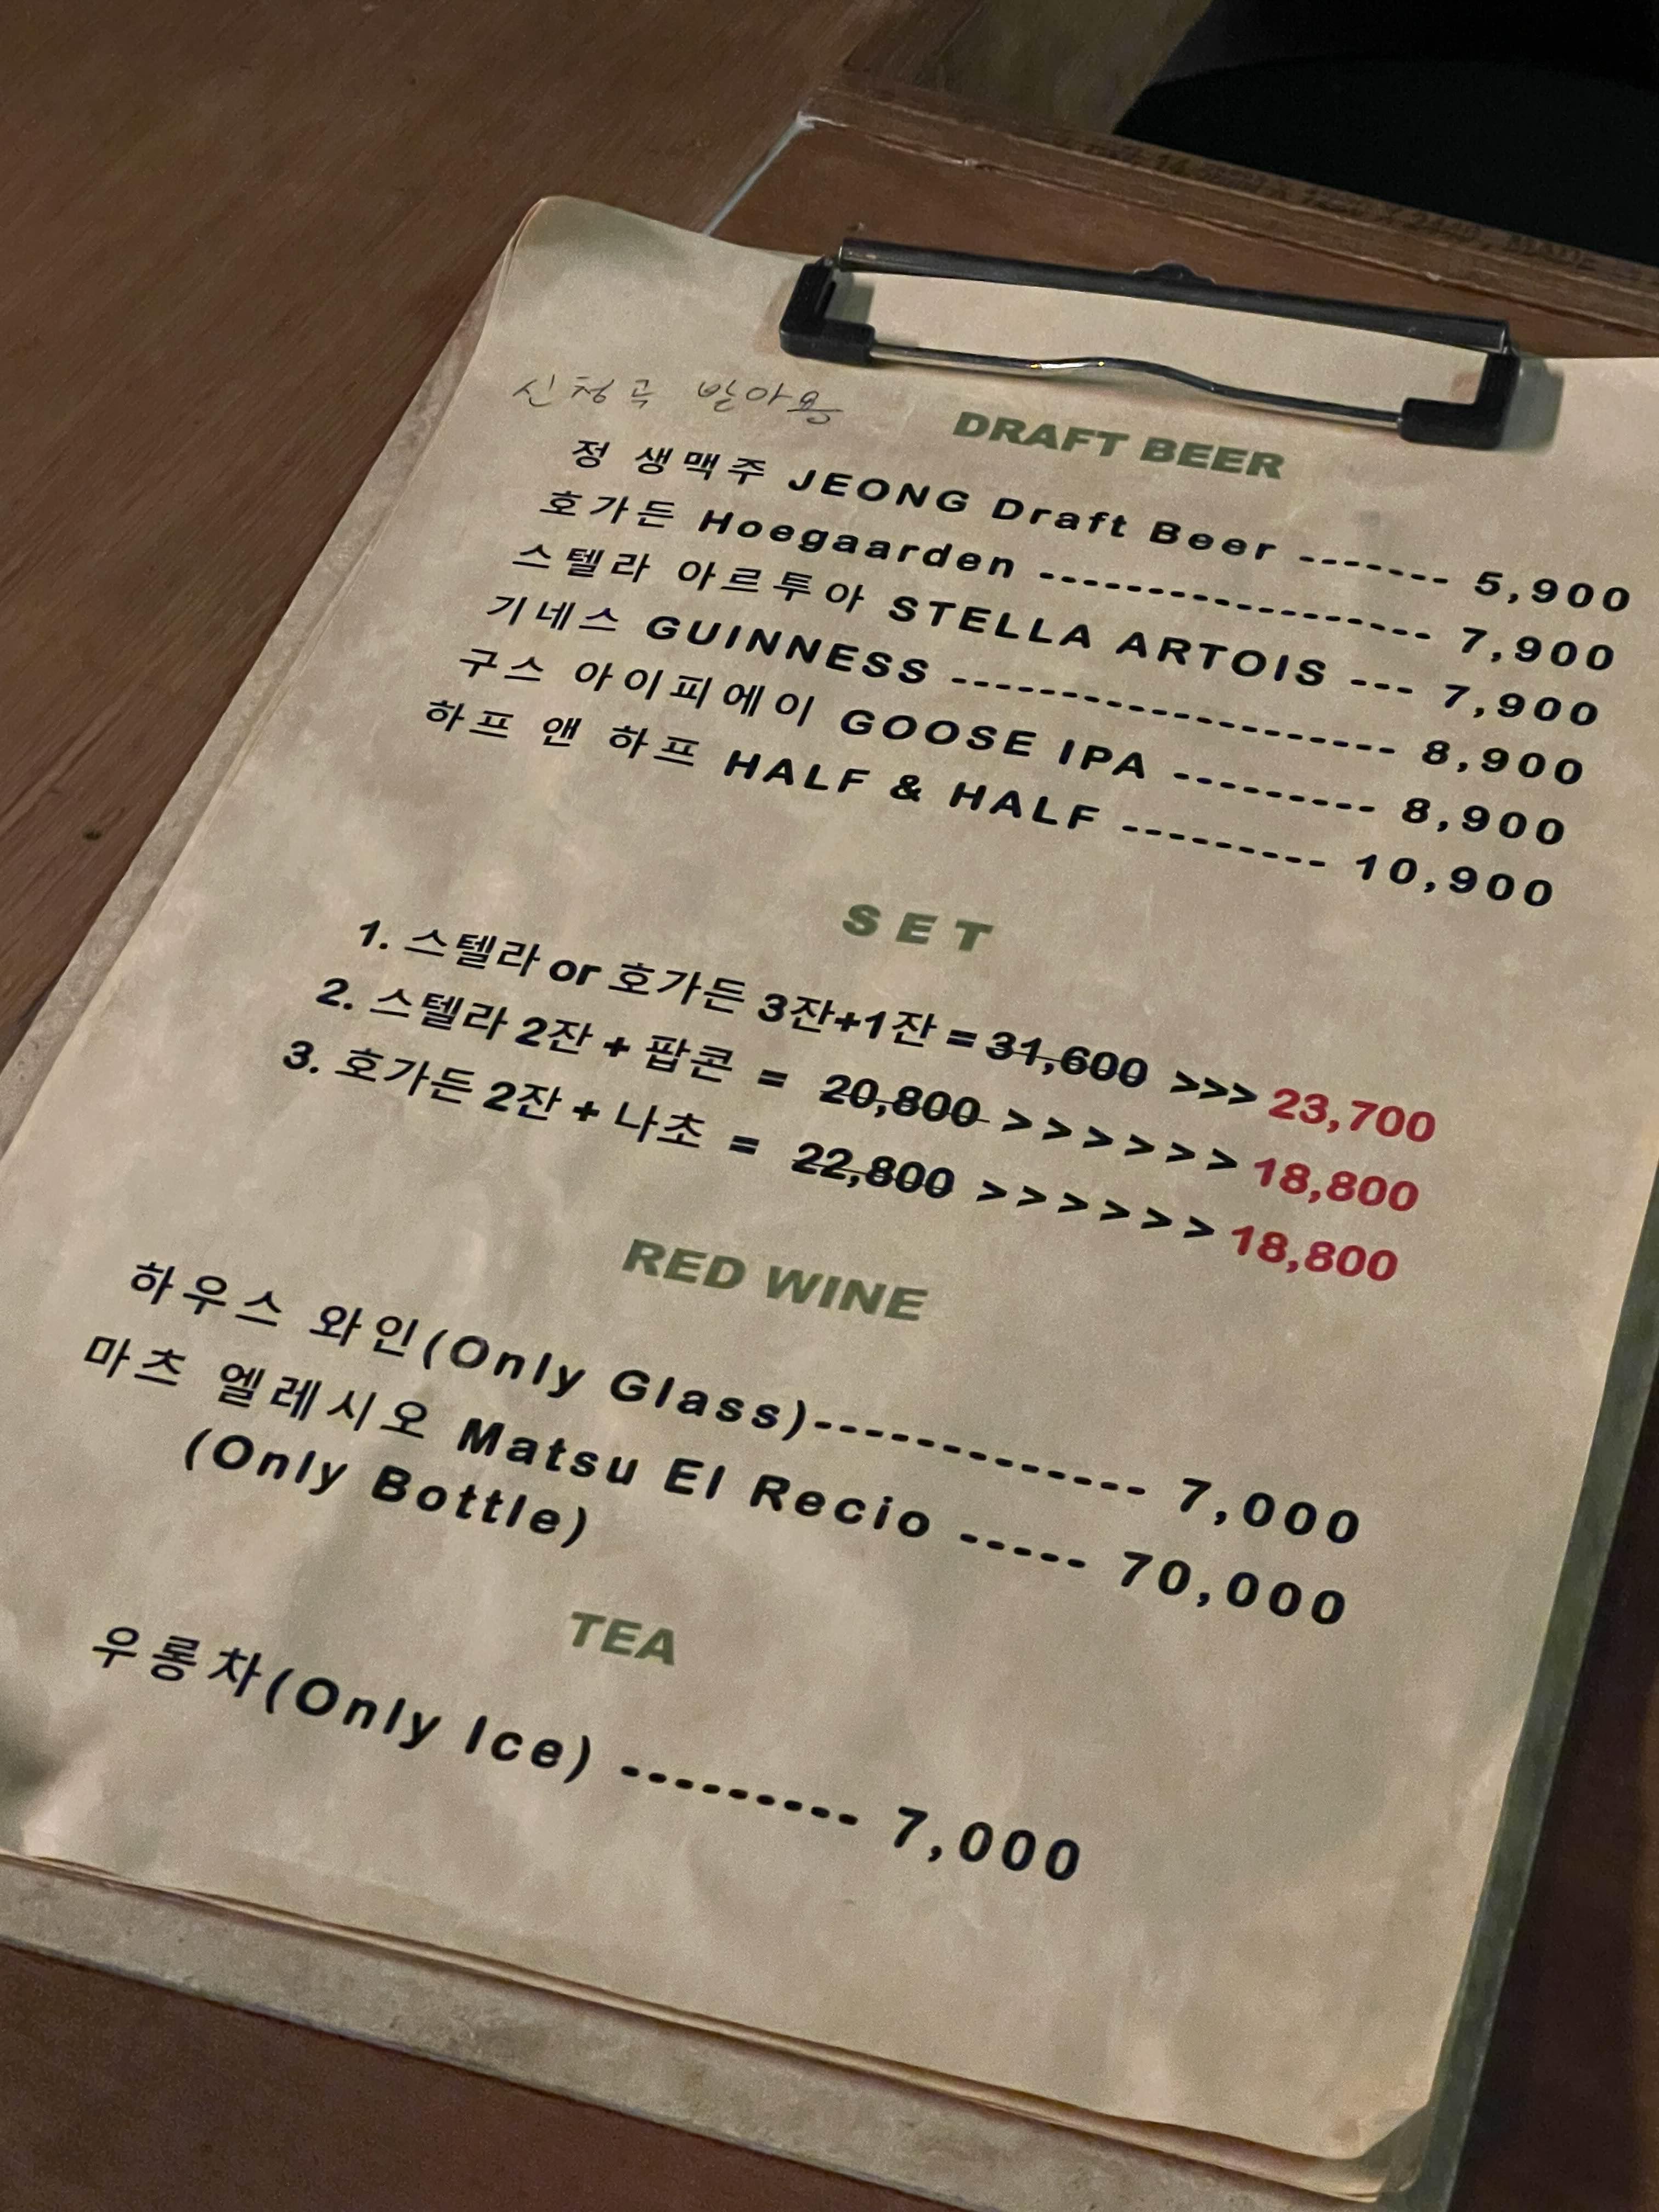 신청곡 받아용
DRAFT BEER
정 생맥주 JEONG Draft Beer ------- 5,900
호가든 Hoegaarden ------------------ 7,900
스텔라 아르투아 STELLA ARTOIS --- 7,900
기네스 GUINNESS -------------------- 8,900
구스 아이피에이 GOOSE IPA --------- 8,900
하프 앤 하프 HALF & HALF --------- 10,900
SET
1. 스텔라 or 호가든 3잔+1잔 = 31,600 >>> 23,700
2. 스텔라 2잔 + 팝콘 = 20,800 >>>>>> 18,800
3. 호가든 2잔 + 나초 = 22,800 >>>>>> 18,800
RED WINE
하우스 와인(Only Glass)-------------- 7,000
마츠 엘레시오 Matsu El Recio ----- 70,000
(Only Bottle)
TEA
우롱차(Only Ice) --------- 7,000